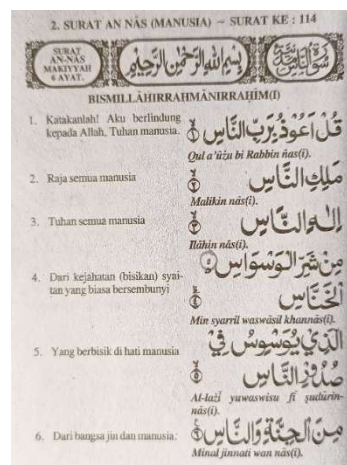 2. SURAT AN NÂS (MANUSIA) ~ SURAT KE : 114
SURAT
AN-NÂS
MAKIYYAH
6 AYAT.
بِسْمِ اللهِ الرَّحْمٰنِ الرَّحِيْمِ
سُوْرَةُ النَّاسِ
BISMILLÂHIRRAHMÂNIRRAHÎM(I)
1. Katakanlah! Aku berlindung
kepada Allah, Tuhan manusia.
قُلْ اَعُوْذُ بِرَبِّ النَّاسِ ۱
Qul a'ûżu bi Rabbin ñas(i).
2. Raja semua manusia
مَلِكِ النَّاسِ ۲
Malikin nâs(i).
3. Tuhan semua manusia
اِلٰهِ النَّاسِ ۳
Ilâhin nâs(i).
4. Dari kejahatan (bisikan) syai-
tan yang biasa bersembunyi
مِنْ شَرِّ الْوَسْوَاسِ
الْخَنَّاسِ ٤
Min syarril waswâsil khannâs(i).
5. Yang berbisik di hati manusia
الَّذِيْ يُوَسْوِسُ فِيْ
صُدُوْرِ النَّاسِ ٥
Al-lażî yuwaswisu fî ṣudûrin-
nâs(i).
6. Dari bangsa jin dan manusia.
مِنَ الْجِنَّةِ وَالنَّاسِ
Minal jinnati wan nâs(i).